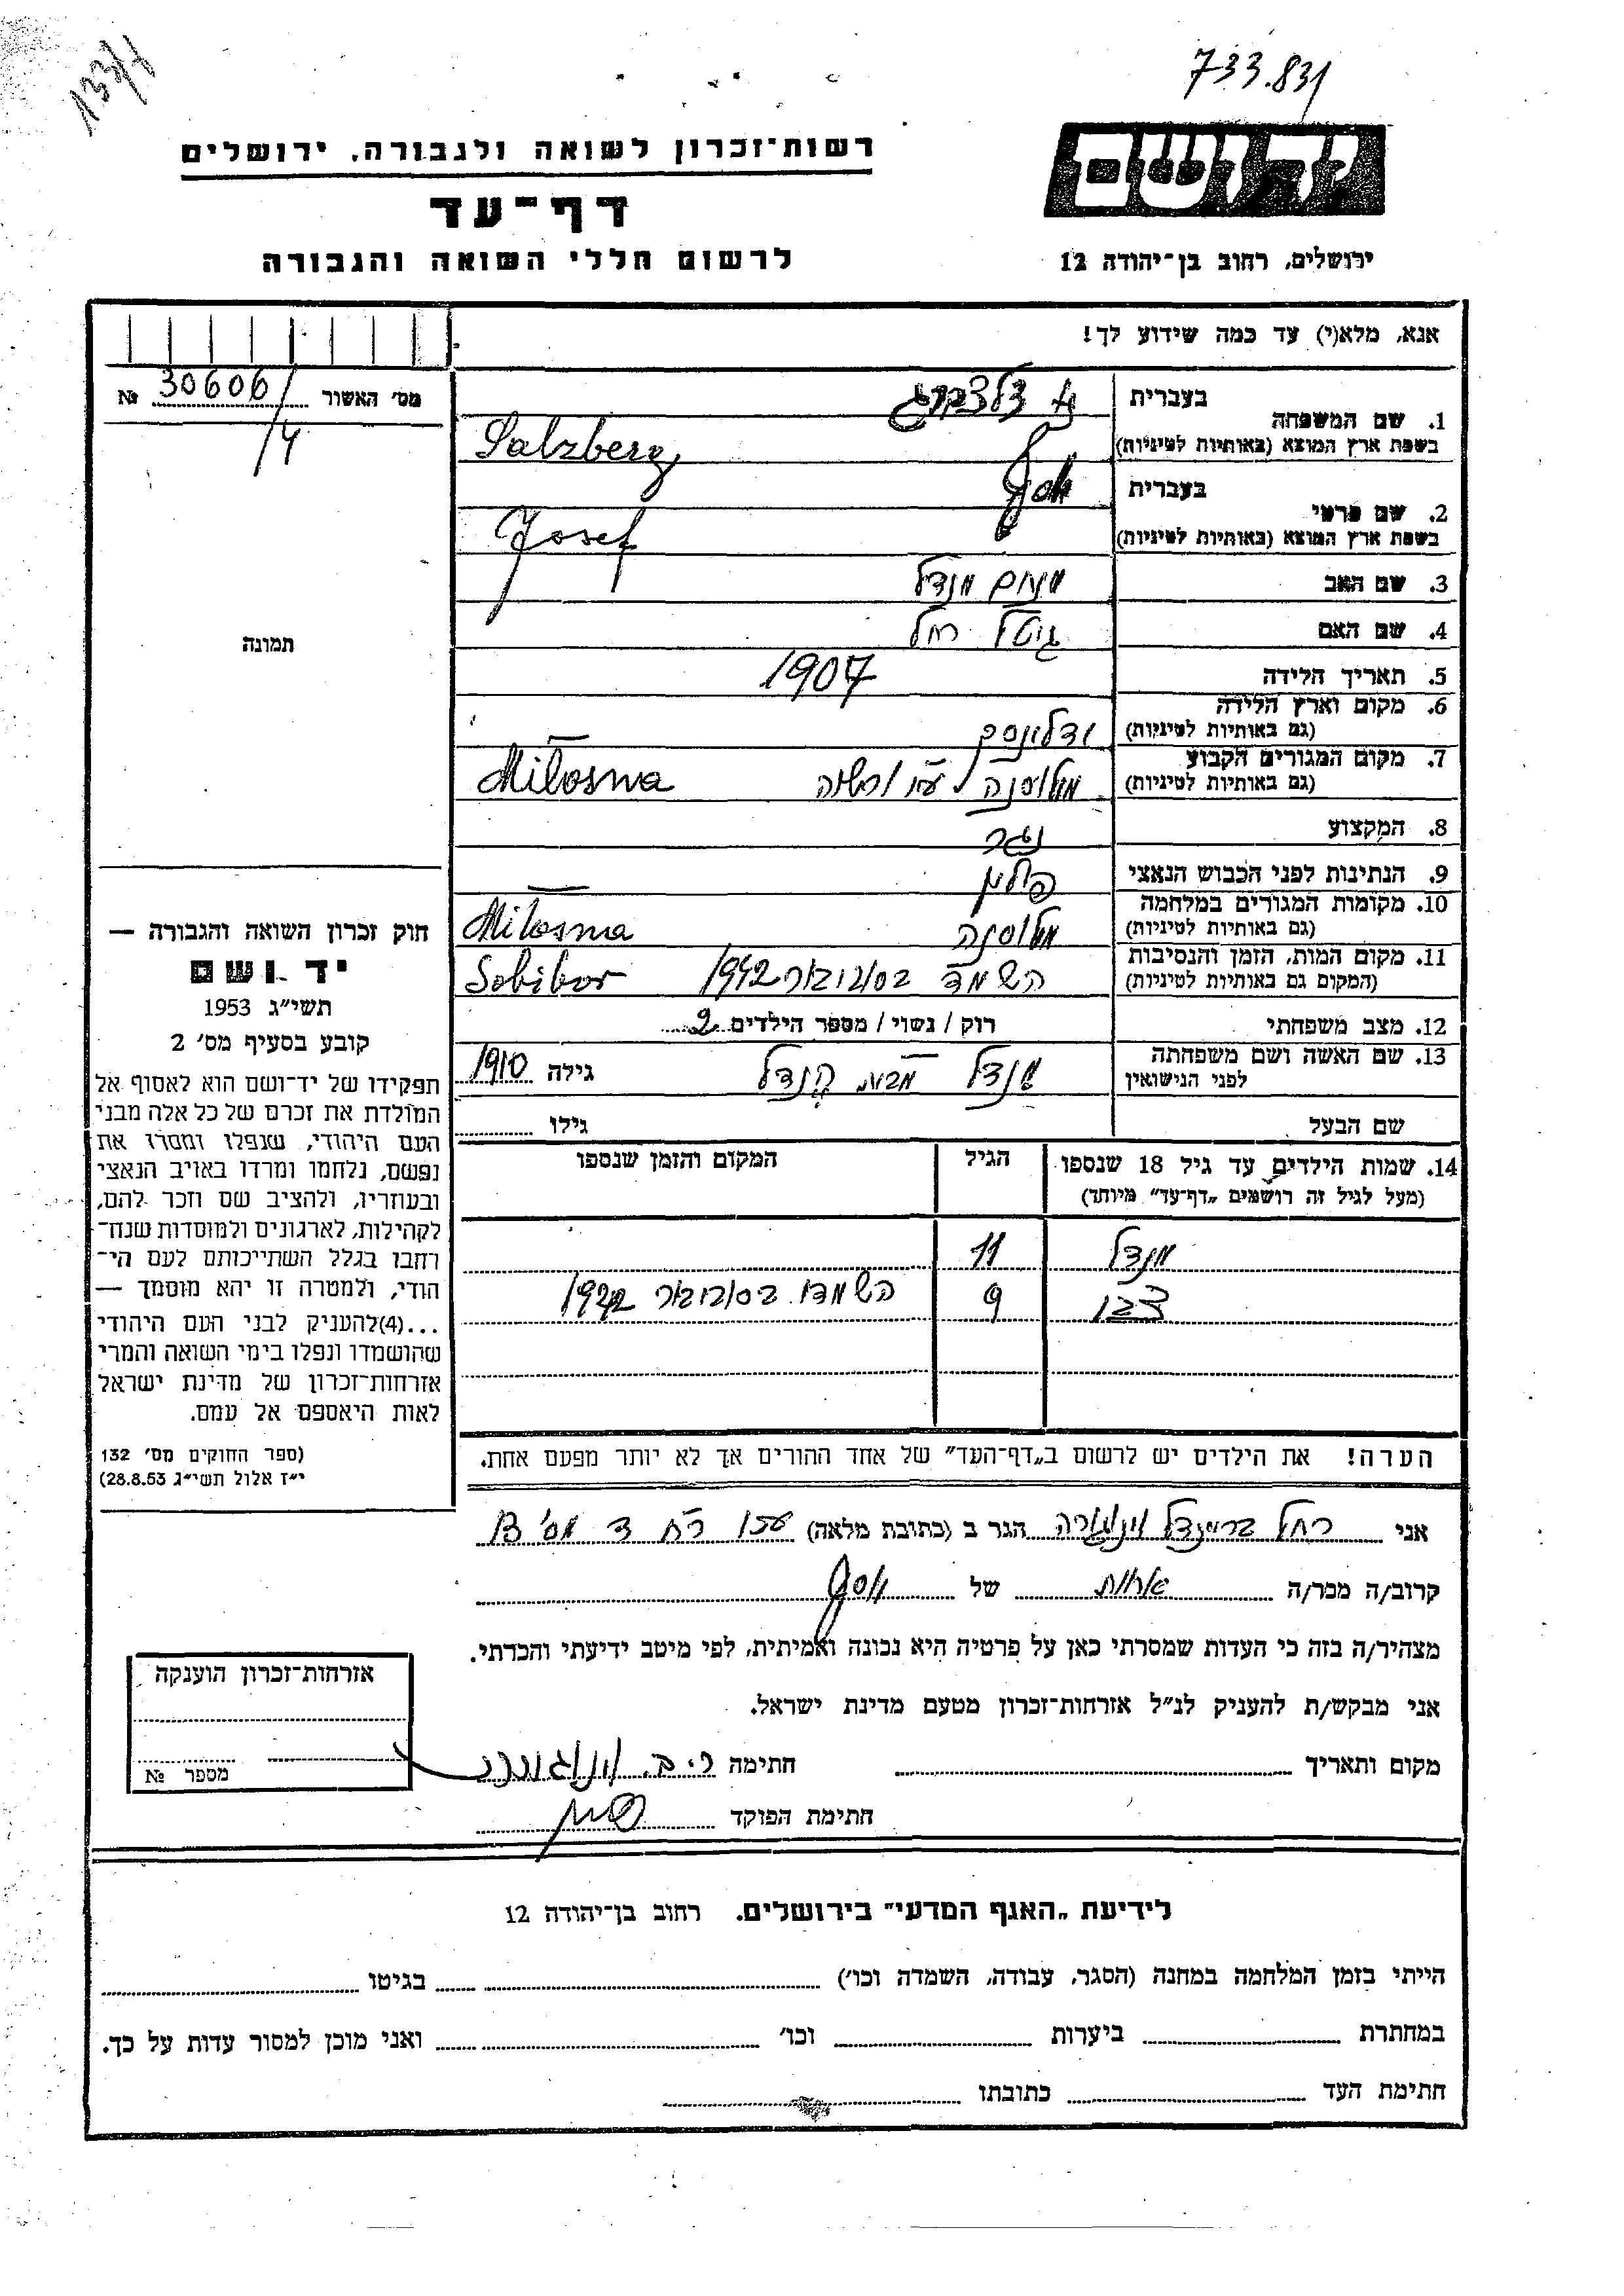 133/1
733.831
רשות־זכרון לשואה ולגבורה, ירושלים
ידושם
דף־עד
לרשום חללי השואה והגבורה
ירושלים, רחוב בן־יהודה 12
אנא, מלא(י) עד כמה שידוע לך!
מס׳ האשור 30606/ №
/4
1. שם המשפחה
בעברית זלצברג
בשפת ארץ המוצא (באותיות לטיניות) Salzberg
2. שם פרטי
בעברית יוסף
בשפת ארץ המוצא (באותיות לטיניות) Josef
3. שם האב מנחם מנדל
4. שם האם גיטל רחל
תמונה
5. תאריך הלידה 1907
6. מקום וארץ הלידה
(גם באותיות לטיניות)
7. מקום המגורים הקבוע
(גם באותיות לטיניות) מילוסנה ע״י ורשה Milosna
8. המקצוע נגר
9. הנתינות לפני הכבוש הנאצי פולין
10. מקומות המגורים במלחמה
(גם באותיות לטיניות) מילוסנה Milosna
11. מקום המות, הזמן והנסיבות
(המקום גם באותיות לטיניות) השמד בסוביבור 1942 Sobibor
12. מצב משפחתי רוק / נשוי / מספר הילדים 2
13. שם האשה ושם משפחתה
לפני הנישואין מבית גילה 1910
שם הבעל גילו
14. שמות הילדים עד גיל 18 שנספו
(מעל לגיל זה רושמים „דף־עד״ מיוחד)
הגיל
המקום והזמן שנספו
מנדל 11
צבי 9 השמדו בסוביבור 1942
הערה! את הילדים יש לרשום ב„דף־העד״ של אחד ההורים אך לא יותר מפעם אחת.
חוק זכרון השואה והגבורה —
יד ושם
תשי״ג 1953
קובע בסעיף מס׳ 2
תפקידו של יד־ושם הוא לאסוף אל
המולדת את זכרם של כל אלה מבני
העם היהודי, שנפלו ומסרו את
נפשם, נלחמו ומרדו באויב הנאצי
ובעוזריו, ולהציב שם וזכר להם,
לקהילות, לארגונים ולמוסדות שנח־
רחבו בגלל השתייכותם לעם הי־
הודי, ולמטרה זו יהא מוסמך —
...(4)להעניק לבני העם היהודי
שהושמדו ונפלו בימי השואה והמרי
אזרחות־זכרון של מדינת ישראל
לאות היאספם אל עמם.
(ספר החוקים מס׳ 132
י״ז אלול תשי״ג 28.8.53)
אני רחל בריינדל וינוגורה הגר ב (כתובת מלאה)
קרוב/ה מכר/ה אחות של יוסף
מצהיר/ה בזה כי העדות שמסרתי כאן על פרטיה היא נכונה ואמיתית, לפי מיטב ידיעתי והכרתי.
אני מבקש/ת להעניק לנ״ל אזרחות־זכרון מטעם מדינת ישראל.
מקום ותאריך חתימה
חתימת הפוקד
אזרחות־זכרון הוענקה
מספר №
לידיעת „האגף המדעי״ בירושלים, רחוב בן־יהודה 12
הייתי בזמן המלחמה במחנה (הסגר, עבודה, השמדה וכו׳) בגיטו
במחתרת ביערות וכו׳ ואני מוכן למסור עדות על כך.
חתימת העד כתובתו